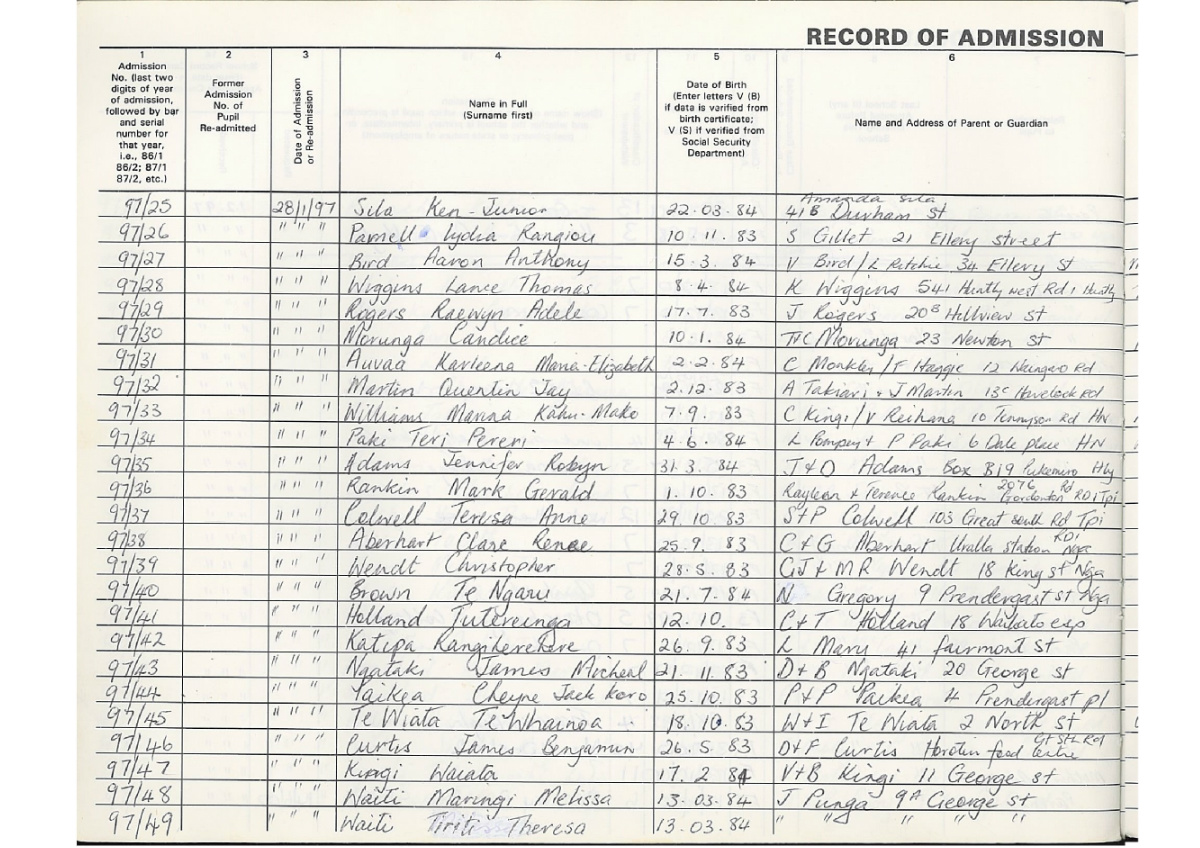 RECORD OF ADMISSION
1 2 3 4 5 6
Admission No. (last two digits of year of admission, followed by bar and serial number for that year, i.e., 86/1 86/2; 87/1 87/2, etc.)
Former Admission No. of Pupil Re-admitted
Date of Admission or Re-admission
Name in Full (Surname first)
Date of Birth (Enter letters V (B) if data is verified from birth certificate; V (S) if verified from Social Security Department)
Name and Address of Parent or Guardian
97/25 28/1/97 Sila Ken-Junior 22.03.84 Amanda Sila 41B Durham st
97/26 " " " Parnell Lydia Rangiou 10.11.83 S Gillet 21 Ellery street
97/27 " " " Bird Aaron Anthony 15.3.84 V Bird/L Ritchie 34 Ellery St
97/28 " " " Wiggins Lance Thomas 8.4.84 K Wiggins 541 Huntly west Rd 1 Huntly
97/29 " " " Rogers Raewyn Adele 17.7.83 J Rogers 20B Hillview st
97/30 " " " Morunga Candice 10.1.84 Morunga 23 Newton st
97/31 " " " Auvaa Karleena Maria-Elizabeth 2.2.84 C Monkley/F Hangie 12 Rd
97/32 " " " Martin Quentin Jay 2.12.83 A Takiari & J Martin 13c Havelock Rd
97/33 " " " Williams Marina Kahu-Mako 7.9.83 C Kingi/V Reihana 10 Tennyson Rd Hn
97/34 " " " Paki Teri Pereri 4.6.84 L Pompey + P Paki 6 Dale place HN
97/35 " " " Adams Jennifer Robyn 31.3.84 J&D Adams Box B19 Pukemiro Hly
97/36 " " " Rankin Mark Gerald 1.10.83 Rayleen & Terence Rankin 2076 Gordonton Rd RD1 Tpi
97/37 " " " Colwell Teresa Anne 29.10.83 S+P Colwell 103 Great south Rd Tpi
97/38 " " " Aberhart Clare Renee 25.9.83 C+G Aberhart Uralla station RD1 Nga
97/39 " " " Wendt Christopher 28.5.83 GJ+MR Wendt 18 King st Nga
97/40 " " " Brown Te Ngaru 21.7.84 N Gregory 9 Prendergast st Nga
97/41 " " " Holland Tutereinga 12.10. C+T Holland 18 Waikato esp
97/42 " " " Katipa Rangikerekere 26.9.83 L Maru 41 fairmont st
97/43 " " " Ngataki James Micheal 21.11.83 D+B Ngataki 20 George st
97/44 " " " Paikea Cheyne Jack Koro 25.10.83 P+P Paikea 4 Prendergast pl
97/45 " " " Te Wiata TeWhainoa 18.10.83 W+I Te Wiata 2 North st
97/46 " " " Curtis James Benjamin 26.5.83 D+F Curtis Horotiu feed centre Gt Sth Rd
97/47 " " " Kingi Waiata 17.2 84 V+B Kingi 11 George st
97/48 " " " Waiti Maringi Melissa 13.03.84 J Punga 9A George st
97/49 " " " Waiti Tiriti Theresa 13.03.84 " " " " "